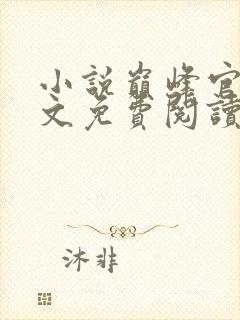 小說巔峰官
文免費閱讀
沐非